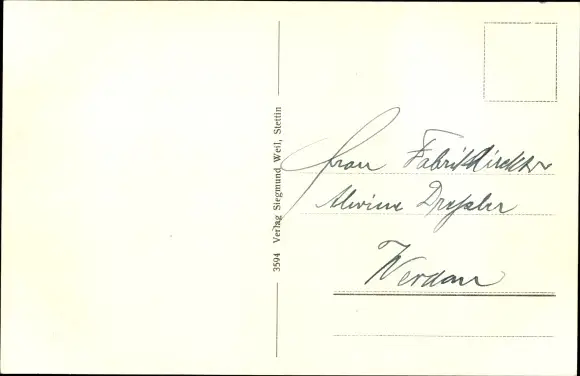 3594 Verlag Siegmund Weil, Stettin
Frau Fabrikdirektor
Alwine Dreßler
Werdau